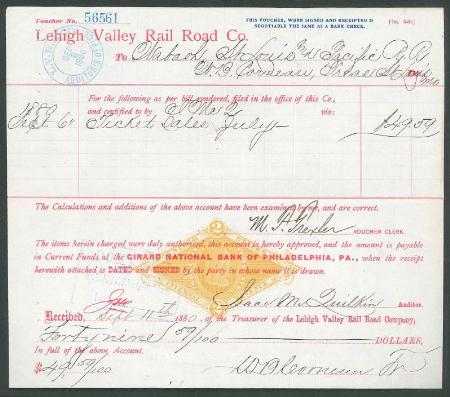 Voucher No. 56561
THIS VOUCHER, WHEN SIGNED AND RECEIPTED IS
NEGOTIABLE THE SAME AS A BANK CHECK.
Lehigh Valley Rail Road Co.
To Wabash St Louis and Pacific Ry
W. B. Corneau,
For the following as per bill rendered, filed in the office of this Co.,
and certified to by viz:
Sept 6 Ticket Sales July $49.59
The Calculations and additions of the above account have been examined by me, and are correct.
VOUCHER CLERK.
The items herein charged were duly authorised, this account is hereby approved, and the amount is payable
in Current Funds at the GIRARD NATIONAL BANK OF PHILADELPHIA, PA., when the receipt
herewith attached is DATED and SIGNED by the party in whose name it is drawn.
2
Isaac McQuilkin Auditor.
Received, Sept 11th 1880 of the Treasurer of the Lehigh Valley Rail Road Company,
Forty nine 59/100 DOLLARS,
In full of the above Account.
$49 59/100 W B Corneau Tr